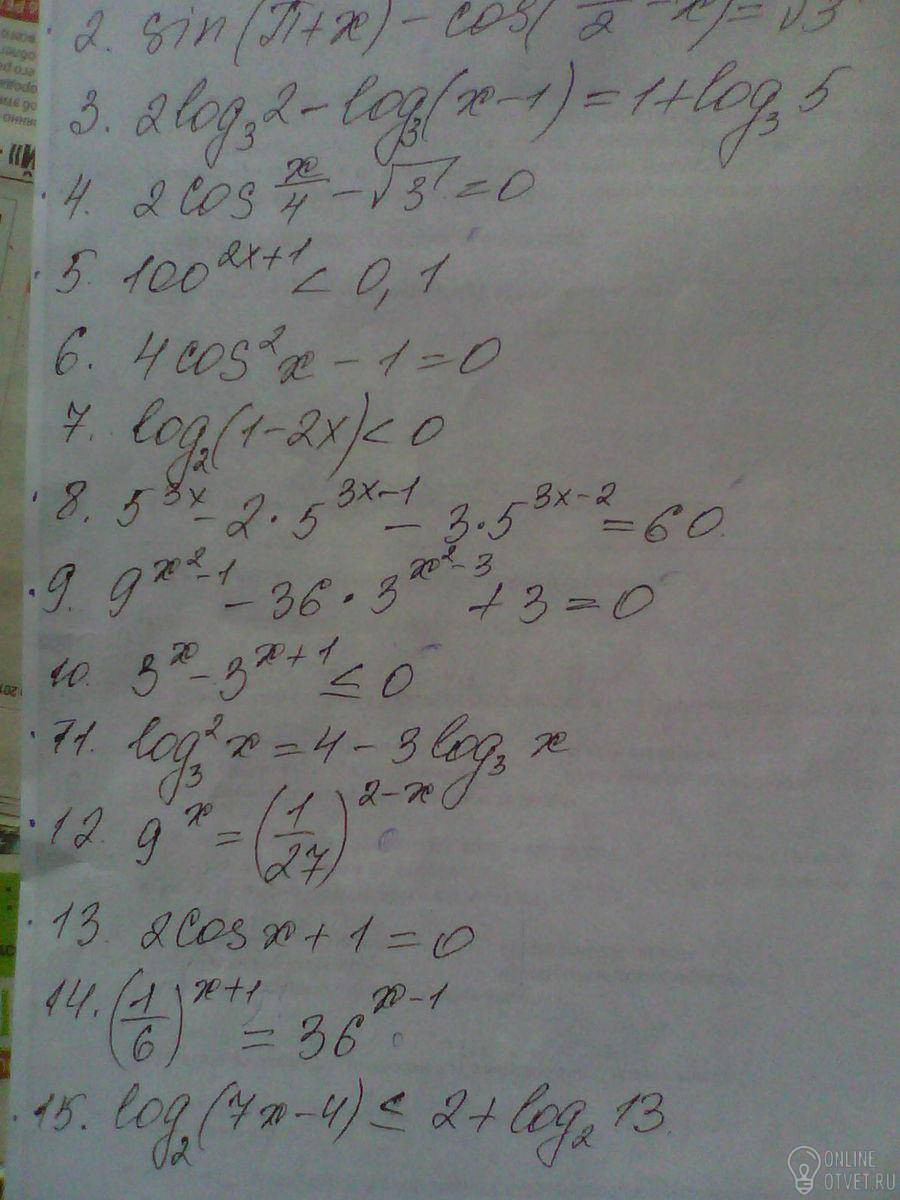 2. sin(π+x) - cos(π/2 - x) = √3
3. 2log₃2 - log₃(x-1) = 1 + log₃5
4. 2cos x/4 - √3 = 0
5. 100^(2x+1) < 0,1
6. 4cos²x - 1 = 0
7. log₂(1-2x) < 0
8. 5^(3x) - 2·5^(3x-1) - 3·5^(3x-2) = 60.
9. 9^(x²-1) - 36·3^(x²-3) + 3 = 0
10. 3^x - 3^(x+1) ≤ 0
11. log₃²x = 4 - 3log₃x
12. 9^x = (1/27)^(2-x)
13. 2cosx + 1 = 0
14. (1/6)^(x+1) = 36^(x-1)
15. log₂(7x-4) ≤ 2 + log₂13.
ONLINE
OTVET.RU